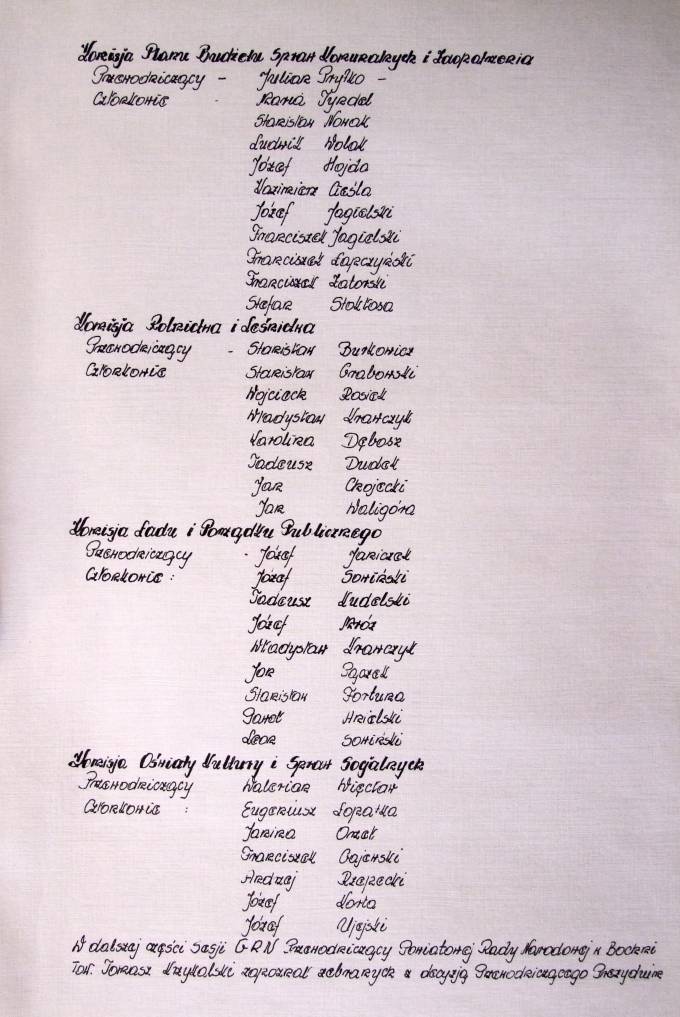 Komisja Planu Budżetu Spraw Komunalnych i Zaopatrzenia
Przewodniczący - Julian Pryłko -
Członkowie - Maria Tyrdel
Stanisław Nowak
Ludwik Wolak
Józef Hojda
Kazimierz Cieśla
Józef Jagielski
Franciszek Jagielski
Franciszek Łapczyński
Franciszek Zatorski
Stefan Stokłosa
Komisja Rolnictwa i Leśnictwa
Przewodniczący - Stanisław Butkowicz
Członkowie Stanisław Grabowski
Wojciech Rosiek
Władysław Krawczyk
Karolina Dębosz
Tadeusz Dudek
Jan Chojecki
Jan Waligóra
Komisja Ładu i Porządku Publicznego
Przewodniczący - Józef Janiczek
Członkowie : Józef Sowiński
Tadeusz Kudelski
Józef Mróz
Władysław Krawczyk
Jan Pączek
Stanisław Fortuna
Paweł Anielski
Leon Sowiński
Komisja Oświaty Kultury i Spraw Socjalnych
Przewodniczący Walerian Więcław
Członkowie : Eugeniusz Łopatka
Janina Orzeł
Franciszek Gajewski
Andrzej Rzepecki
Józef Korta
Józef Ujejski
W dalszej części Sesji G R N Przewodniczący Powiatowej Rady Narodowej w Bochni
Tow. Tomasz Krzykalski zapoznał zebranych z decyzją Przewodniczącego Prezydium